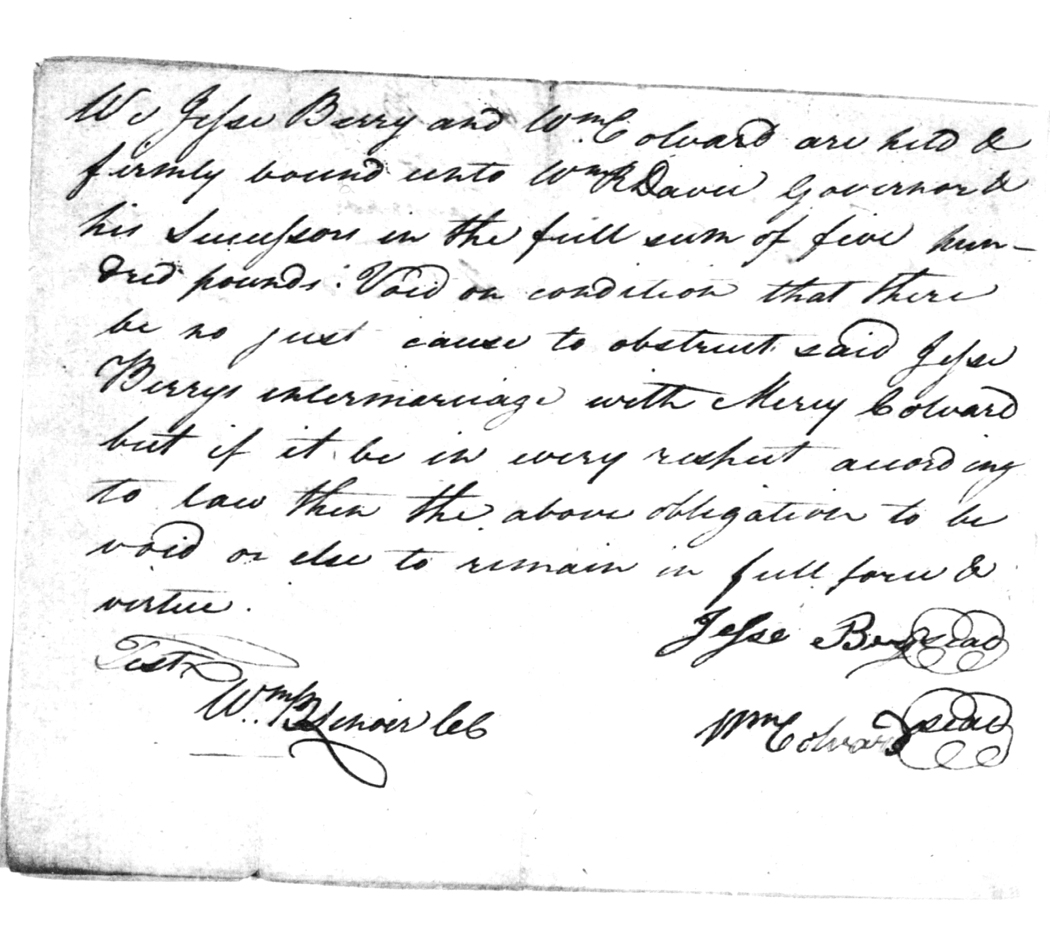 We Jesse Berry and Wm Colvard are held &
firmly bound unto Wm R Davie Governor &
his Successors in the full sum of five hun-
dred pounds. Void on condition that there
be no just cause to obstruct said Jesse
Berrys intermarriage with Mercy Colvard
but if it be in every respect according
to law then the above obligation to be
void or else to remain in full force &
virtue.
Jesse Berry seal
Test
Wm B Lenoir CC
Wm Colvard seal